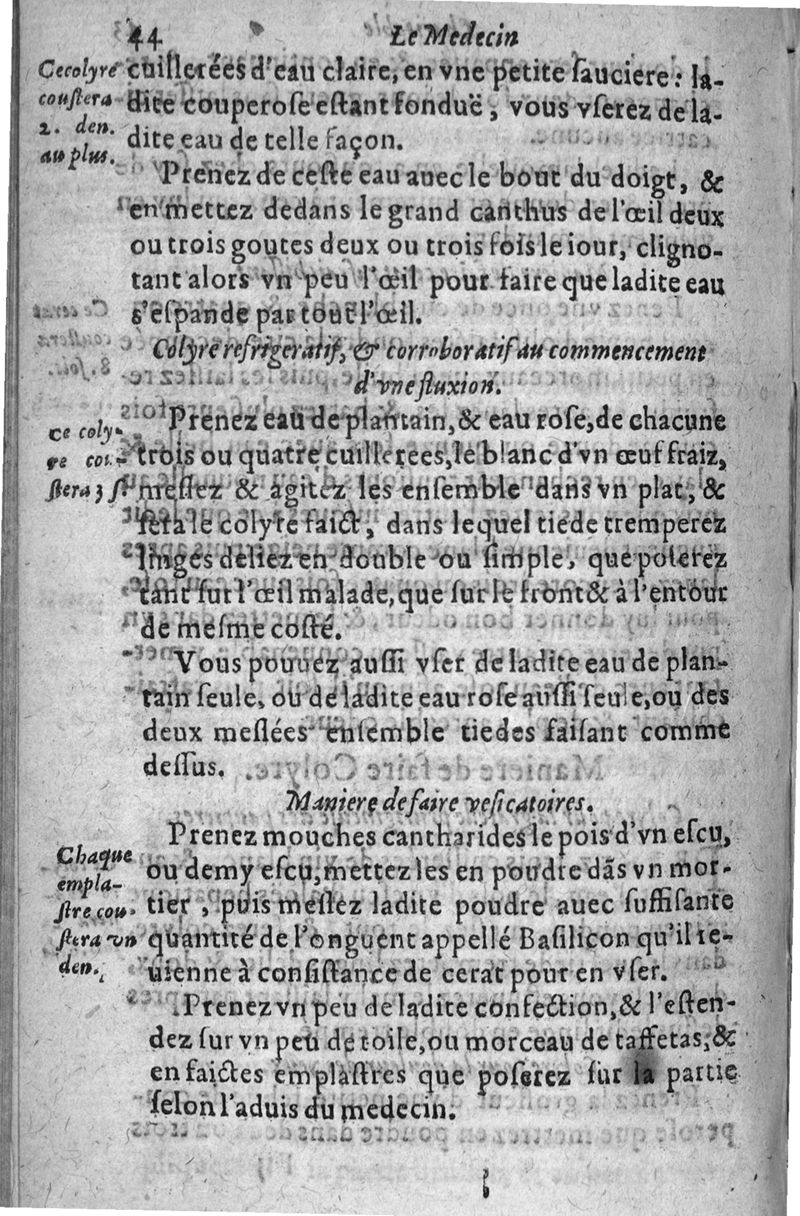 44 Le Medecin
Ce colyre
coustera
2. den.
au plus.
cuillerées d'eau claire, en vne petite sauciere: la-
dite couperose estant fonduë, vous vserez de la-
dite eau de telle façon.
Prenez de ceste eau auec le bout du doigt, &
en mettez dedans le grand canthus de l'œil deux
ou trois goutes deux ou trois fois le iour, cligno-
tant alors vn peu l'œil pour faire que ladite eau
s'espande par tout l'œil.
Colyre refrigeratif, & corroboratif au commencement
d'vne fluxion.
Ce coly-
re cou-
stera 3 s.
Prenez eau de plantain, & eau rose, de chacune
trois ou quatre cuillerees, le blanc d'vn œuf fraiz,
meslez & agitez les ensemble dans vn plat, &
sera le colyre faict, dans lequel tiede tremperez
linges deliez en double ou simple, que poserez
tant sur l'œil malade, que sur le front & à l'entour
de mesme costé.
Vous pouuez aussi vser de ladite eau de plan-
tain seule, ou de ladite eau rose aussi seule, ou des
deux meslées ensemble tiedes faisant comme
dessus.
Maniere de faire vesicatoires.
Chaque
empla-
stre cou-
stera vn
den.
Prenez mouches cantharides le pois d'vn escu,
ou demy escu, mettez les en poudre dãs vn mor-
tier, puis meslez ladite poudre auec suffisante
quantité de l'onguent appellé Basilicon qu'il re-
uienne à consistance de cerat pour en vser.
Prenez vn peu de ladite confection, & l'esten-
dez sur vn peu de toile, ou morceau de taffetas, &
en faictes emplastres que poserez sur la partie
selon l'aduis du medecin.